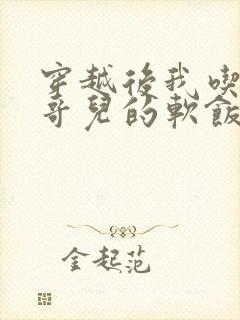 穿越後我喫
哥兒的軟飯
金起范